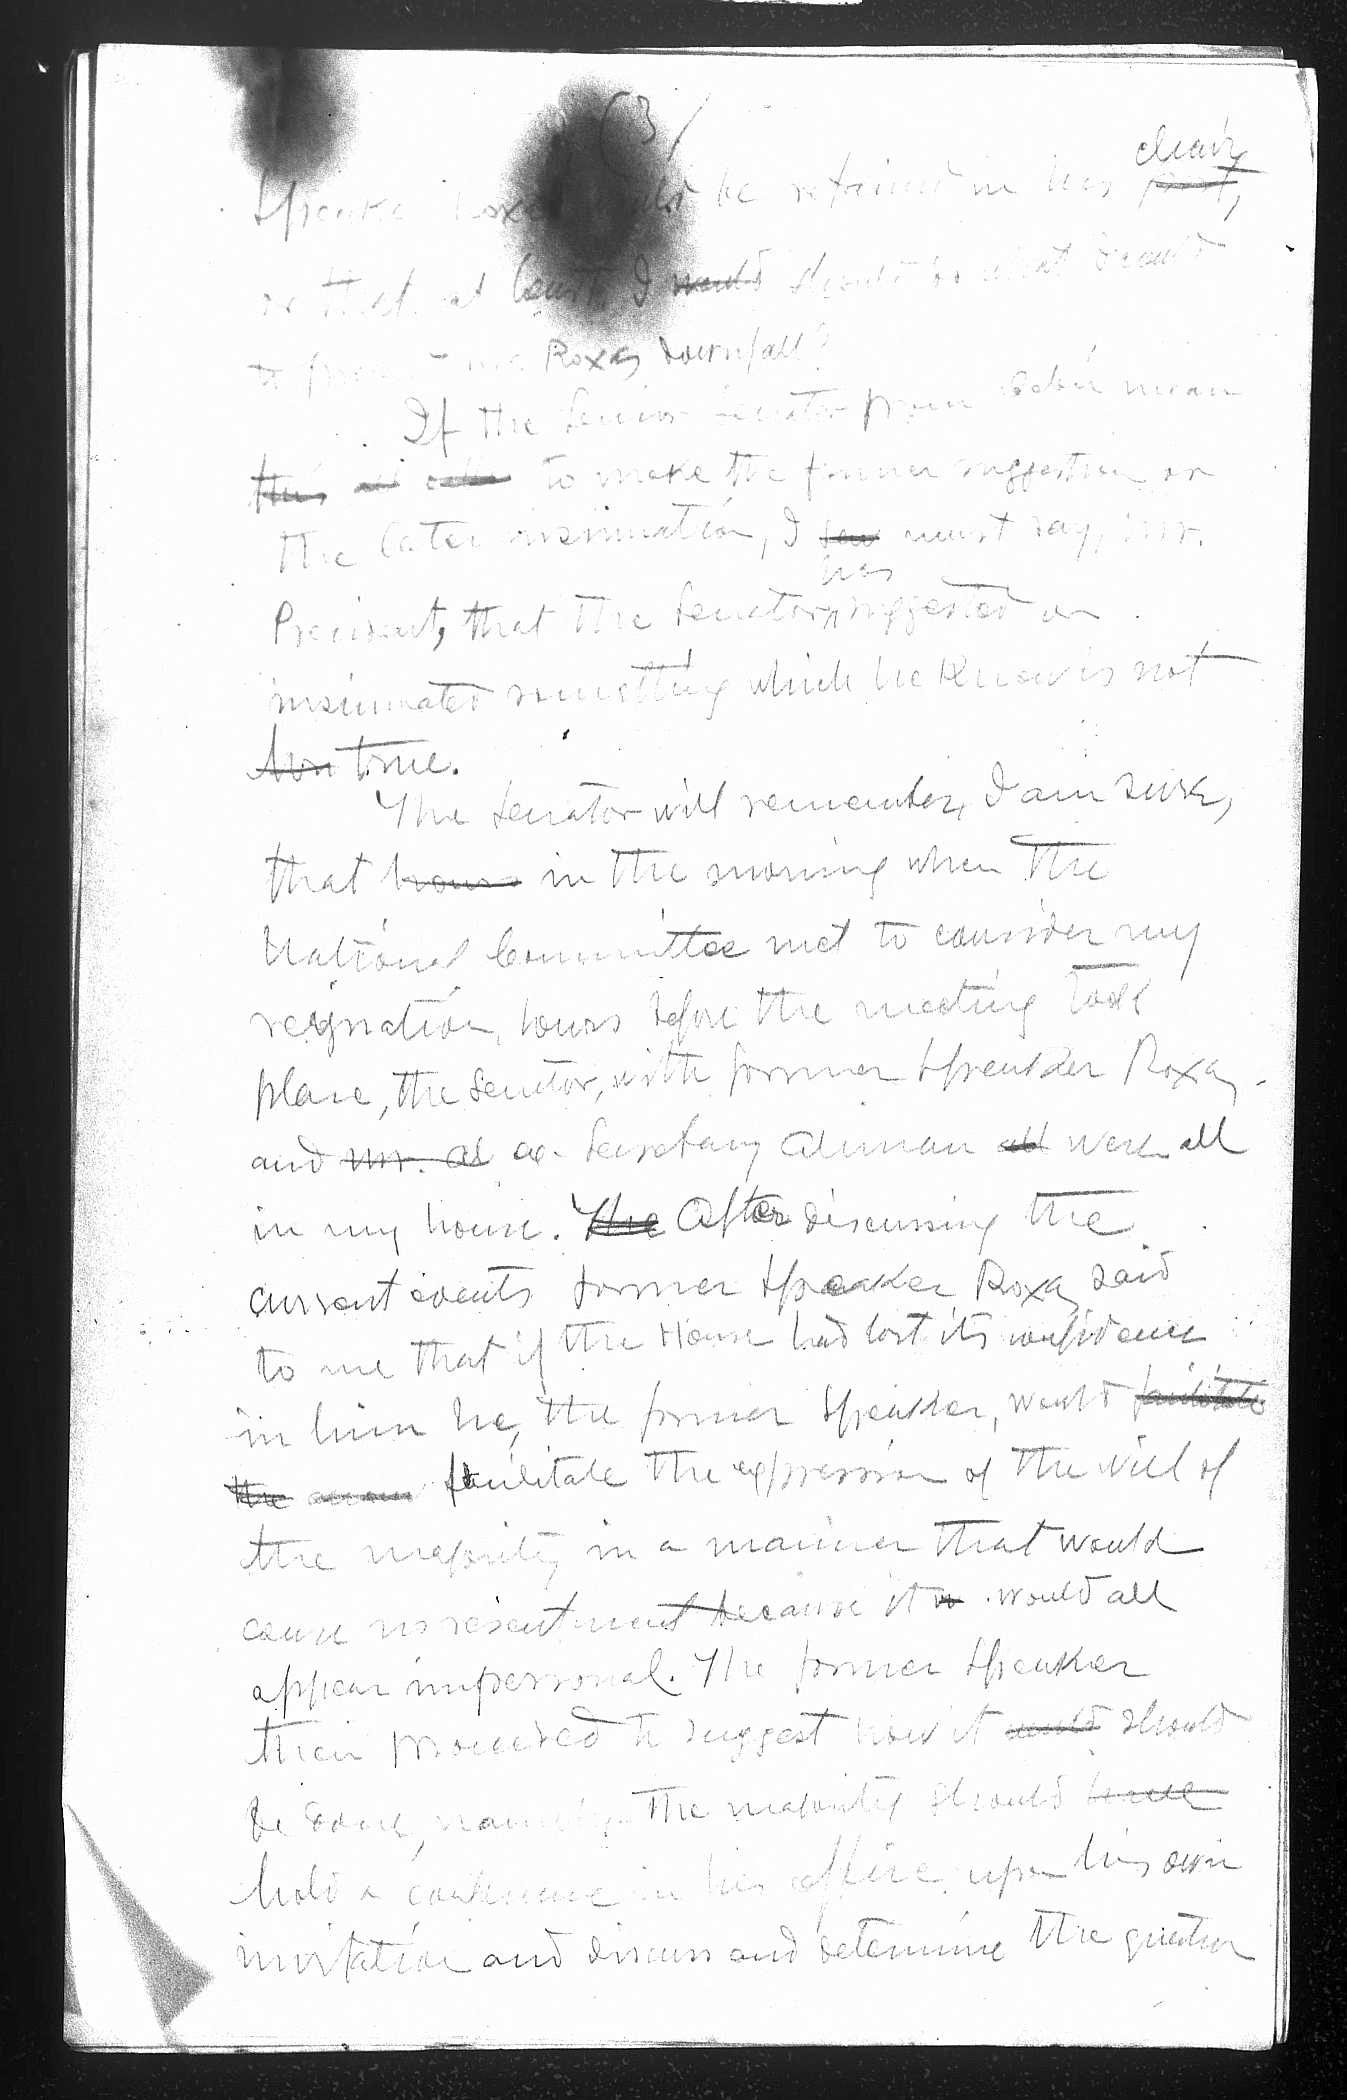 (3)
Speaker Roxas be retained in his ~~post,~~ chair,
or that at least, I ~~would~~ should do what I could
to Roxas downfall?
If the Senior Senator from Cebú mean
~~this~~ to make the former suggestion or
the later insinuation, I must say, Mr.
President, that the Senator has suggested or
insinuated something which he know is not
true.
The Senator will remember, I am sure,
that ~~hours~~ in the morning when the
National Committee met to consider my
resignation, hours before the meeting took
place, the Senator, with former Speaker Roxas
and ~~Mr. Al~~ ex-Secretary Alunan ~~all~~ were all
in my house. ~~The~~ After discussing the
current events former Speaker Roxas said
to me that if the House had lost its confidence
in him he, the former Speaker, would ~~facilitate~~
~~the~~ facilitate the expression of the will of
the majority in a manner that would
cause no resentment because it would all
appear impersonal. The former Speaker
then proceeded to suggest how it ~~could~~ should
be done, namely: The majority should ~~have~~
hold a conference in his office upon his own
invitation and discuss and determine the question